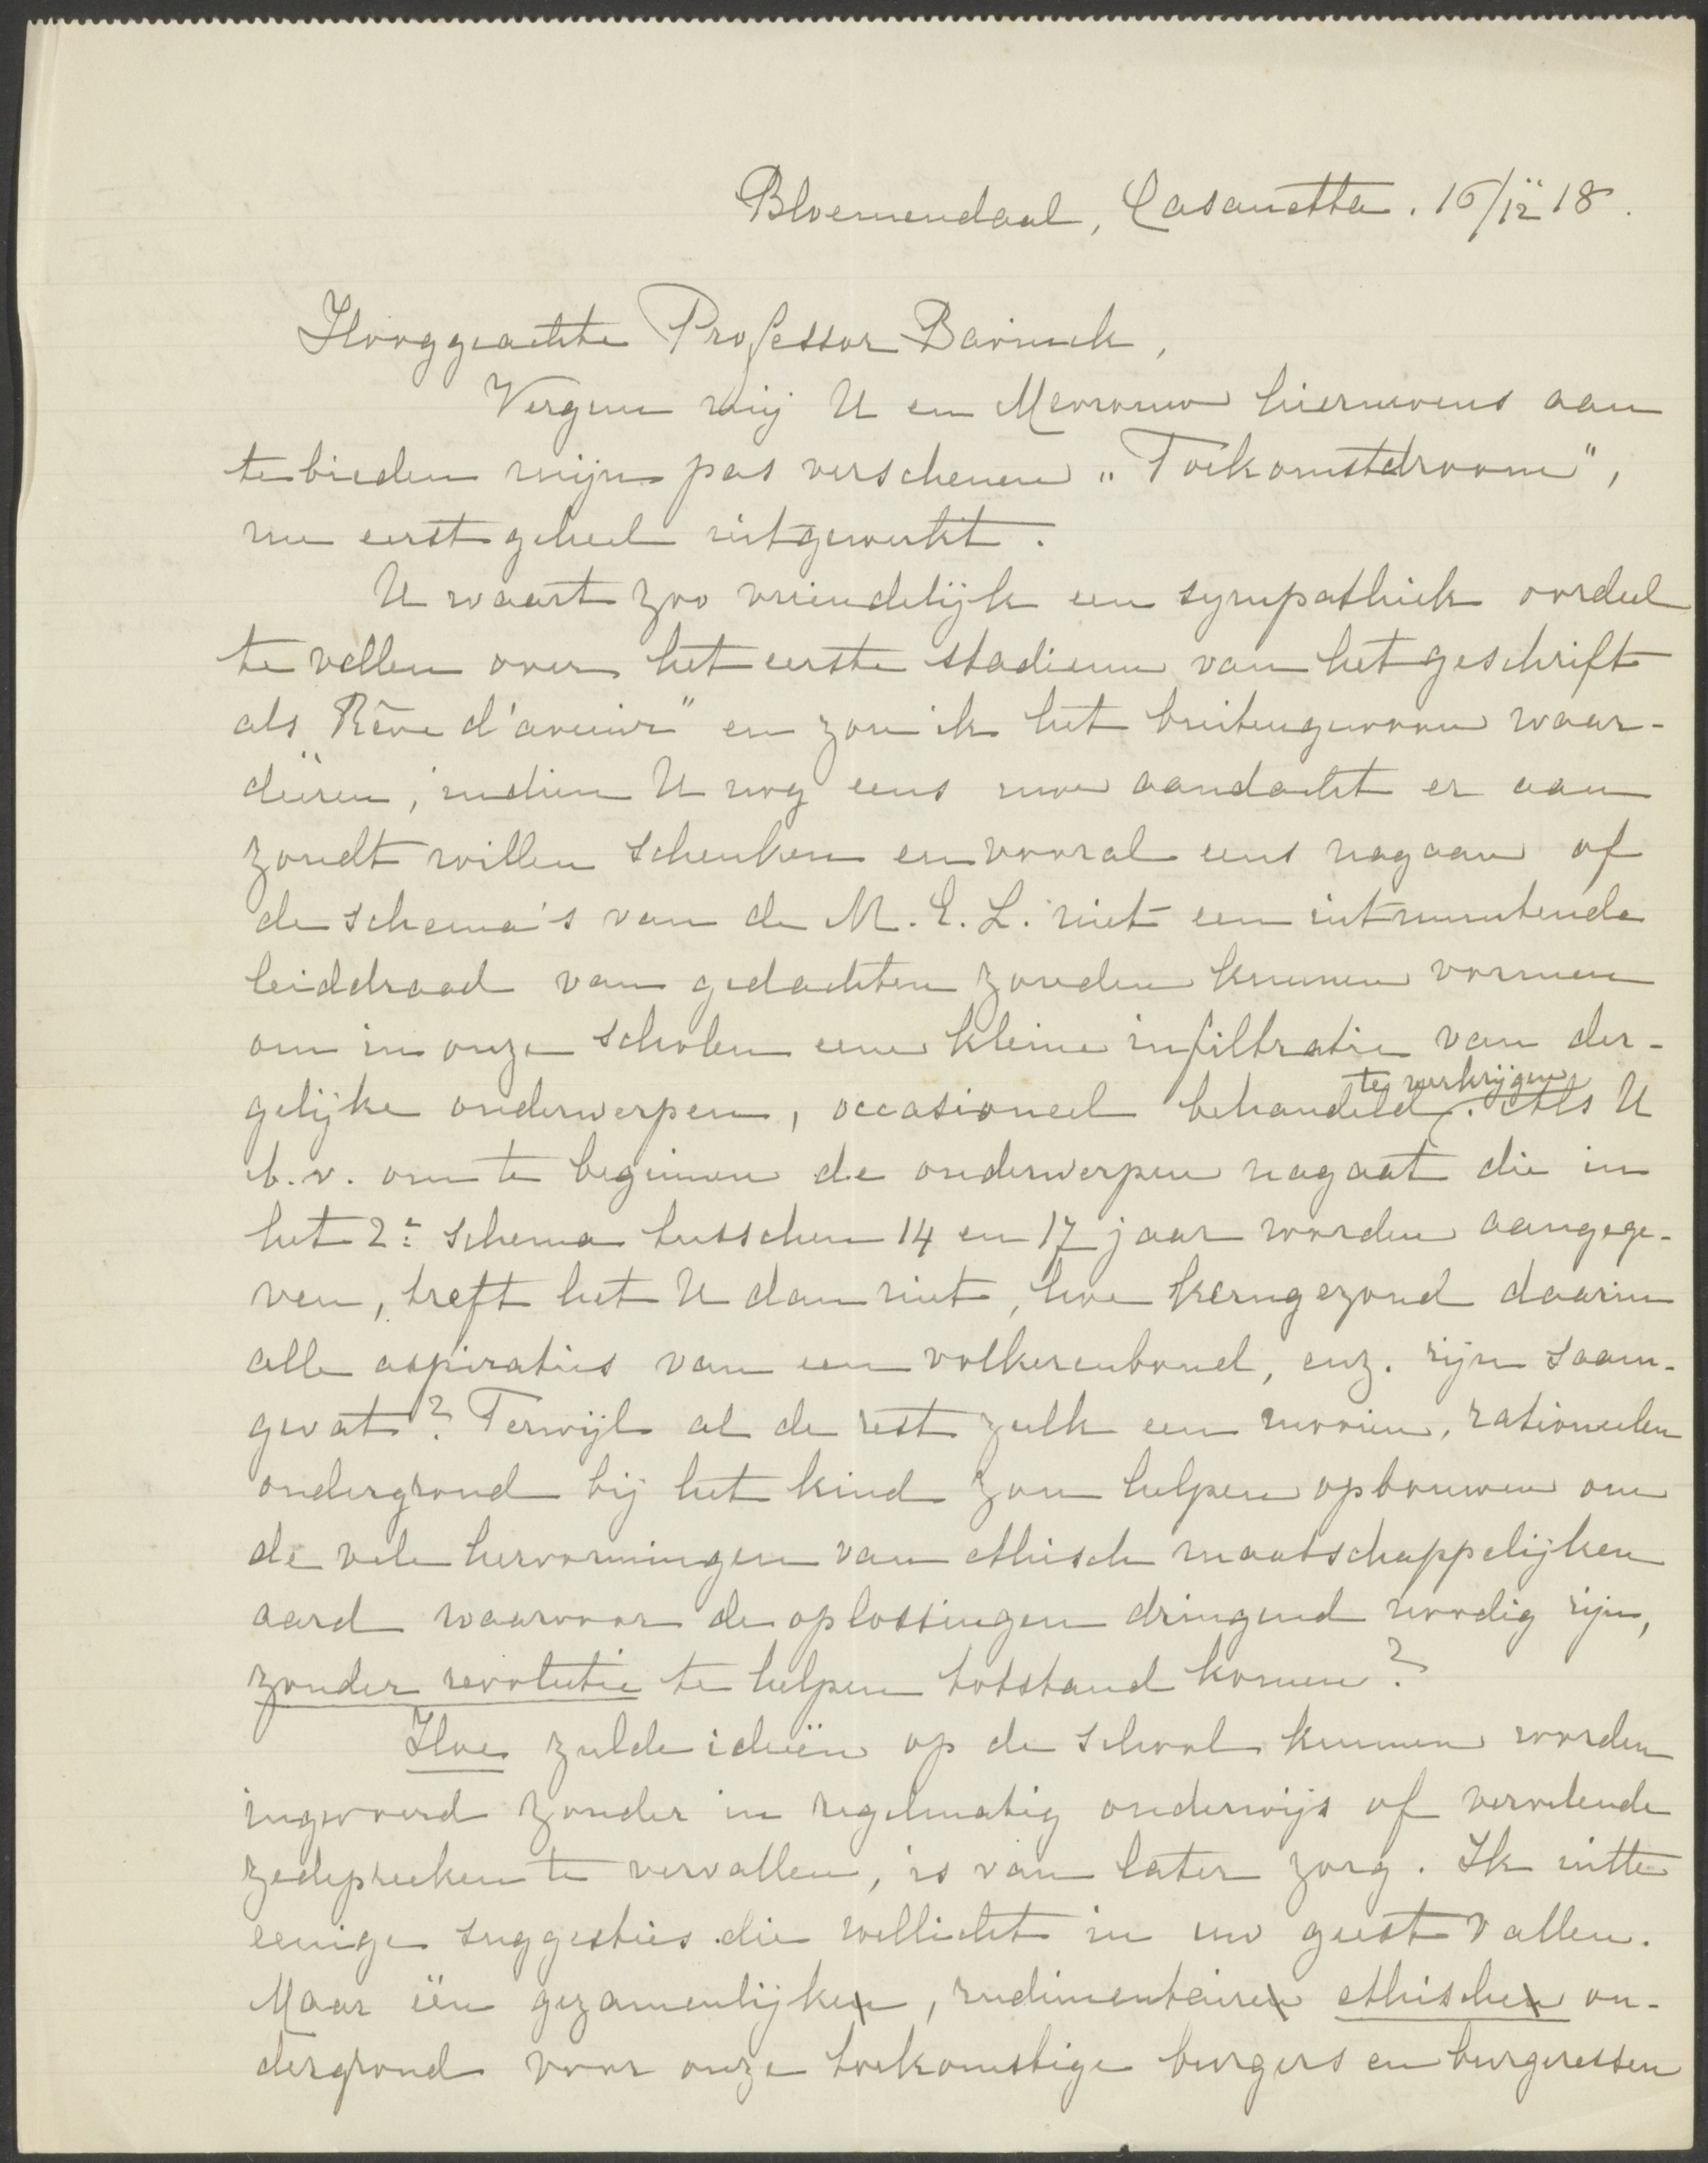 Bloemendaal, Casanetta. 16/12 18.
Hooggeachte Professor Bavinck,
Vergun mij U en Mevrouw hiernevens aan
te bieden mijn pas verschenen „Toekomstdroom",
nu eerst geheel uitgewerkt.
U waart zoo vriendelijk een sympathiek oordeel
te vellen over het eerste stadium van het geschrift
als „Rêve d'avenir" en zou ik het buitengewoon waar-
deeren, indien U nog eens uwe aandacht er aan
zoudt willen schenken en vooral eens nagaan of
de schema's van de M. E. L. niet een uitmuntende
leiddraad van gedachten zouden kunnen vormen
om in onze scholen eene kleine infiltratie van der-
gelijke onderwerpen, occasioneel behandeld te verkrijgen. Als U
b.v. om te beginnen de onderwerpen nagaat die in
het 2e schema tusschen 14 en 17 jaar worden aangege-
ven, treft het U dan niet, hoe kerngezond daarin
alle aspiraties van een volkerenbond, enz. zijn saam-
gevat? Terwijl al de rest zulk een mooien, rationeelen
ondergrond bij het kind zou helpen opbouwen om
de vele hervormingen van ethisch maatschappelijken
aard waarvoor de oplossingen dringend noodig zijn,
zonder revolutie te helpen totstand komen?
Hoe zulke ideeën op de school kunnen worden
ingevoerd zonder in regelmatig onderwijs of vervelende
zedepreeken te vervallen, is van later zorg. Ik uitte
eenige suggesties die wellicht in uw geest vallen.
Maar één gezamenlijke, rudimentaire ethische on-
dergrond voor onze toekomstige burgers en burgeressen